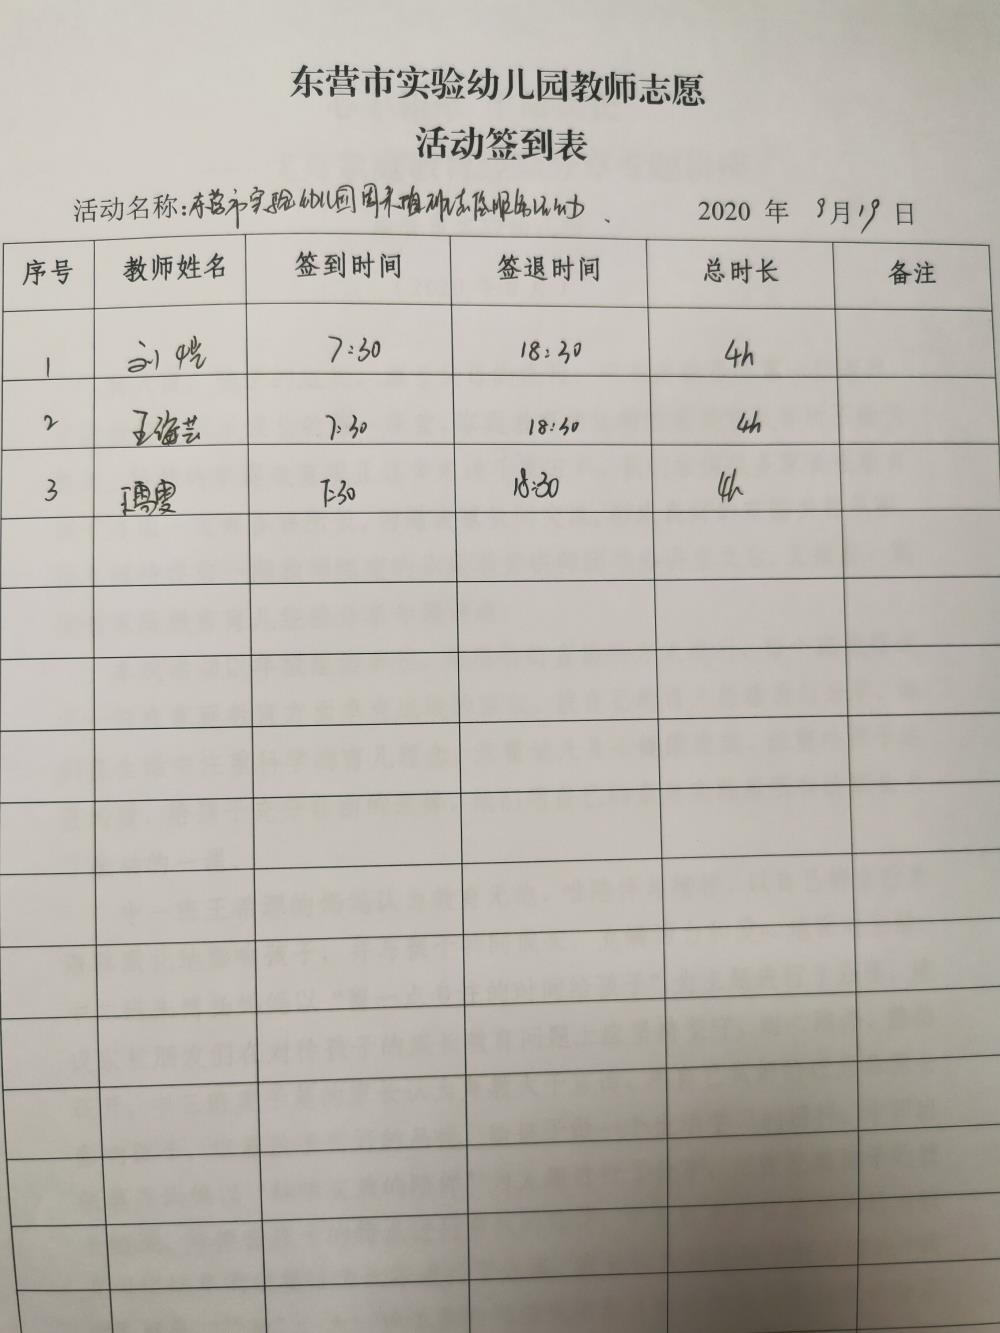 东营市实验幼儿园教师志愿
活动签到表
活动名称:东营市实验幼儿园周末值班志愿服务活动、 2020 年 9月19 日
序号 教师姓名 签到时间 签退时间 总时长 备注
1 刘恺 7:30 18:30 4h
2 王海芸 7:30 18:30 4h
3 7:30 18:30 4h